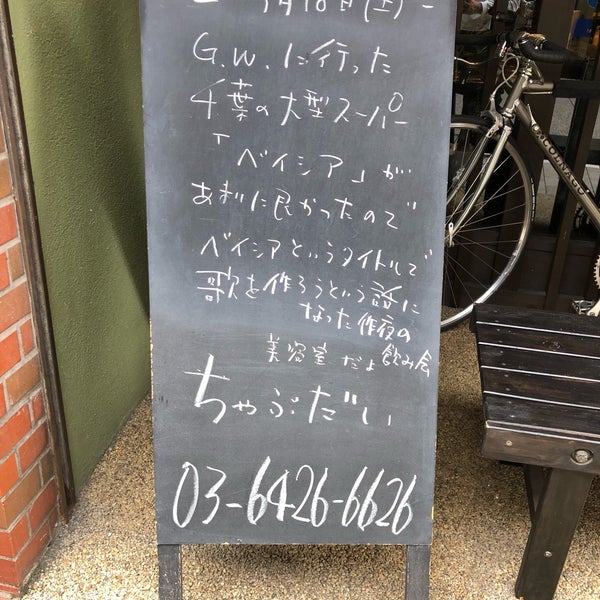 5月18日(土)
G.W.に行った
千葉の大型スーパー
「ベイシア」が
あまりに良かったので
ベイシアというタイトルで
歌を作ろうという話に
なった昨夜の
飲み会
美容室だよ
ちゃぶだい
03-6426-6626
COLNAGO